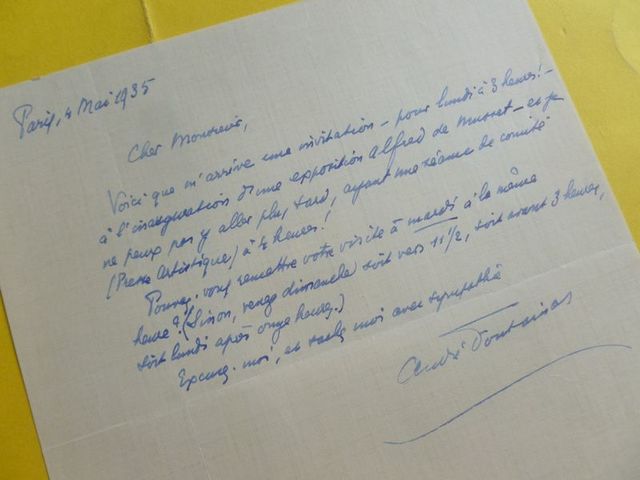 Paris, 4 Mai 1935
Cher Monsieur,
Voici que m'arrive une invitation – pour lundi à 3 heures! –
à l'inauguration d'une exposition Alfred de Musset – et je
ne peux pas y aller plus tard, ayant une séance de comité
(Presse Artistique) à 4 heures!
Pouvez-vous remettre votre visite à mardi à la même
heure? (Sinon, venez dimanche soit vers 11 1/2, soit avant 3 heures,
soit lundi après onze heures.)
Excusez-moi, et moi avec sympathie
André Fontainas